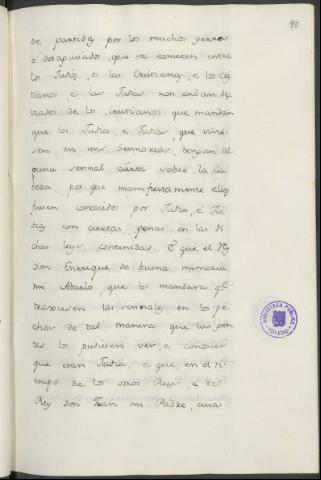 90
de partida por los muchos yerros
é desaguisados, que se cometen entre
los Judíos, é las Cristianas, é los Cris
tianos, é las Judias non andan de
los Cristianos que mandan
que los Judios, é Judias que vivie
sen en mis Sennorios, tengan al
guna sennal cierta sobre la ca
beza por que manifiestamente ellos
fuesen conocidos por Judios, é Ju
dias con ciertas penas en las di
chas leyes contenidas. É que el Rey
Don Enrrique de buena memoria
mi Abuelo, que los mandara qe
traxiesen las sennales en los pe
chos de tal manera que las gen
tes los pudiesen ver, é conocer
que eran Judios, é que en el ti
empo de los otros Reyes, é del
Rey Don Juan mi Padre, cuia
BIBLIOTECA PUBLICA
TOLEDO